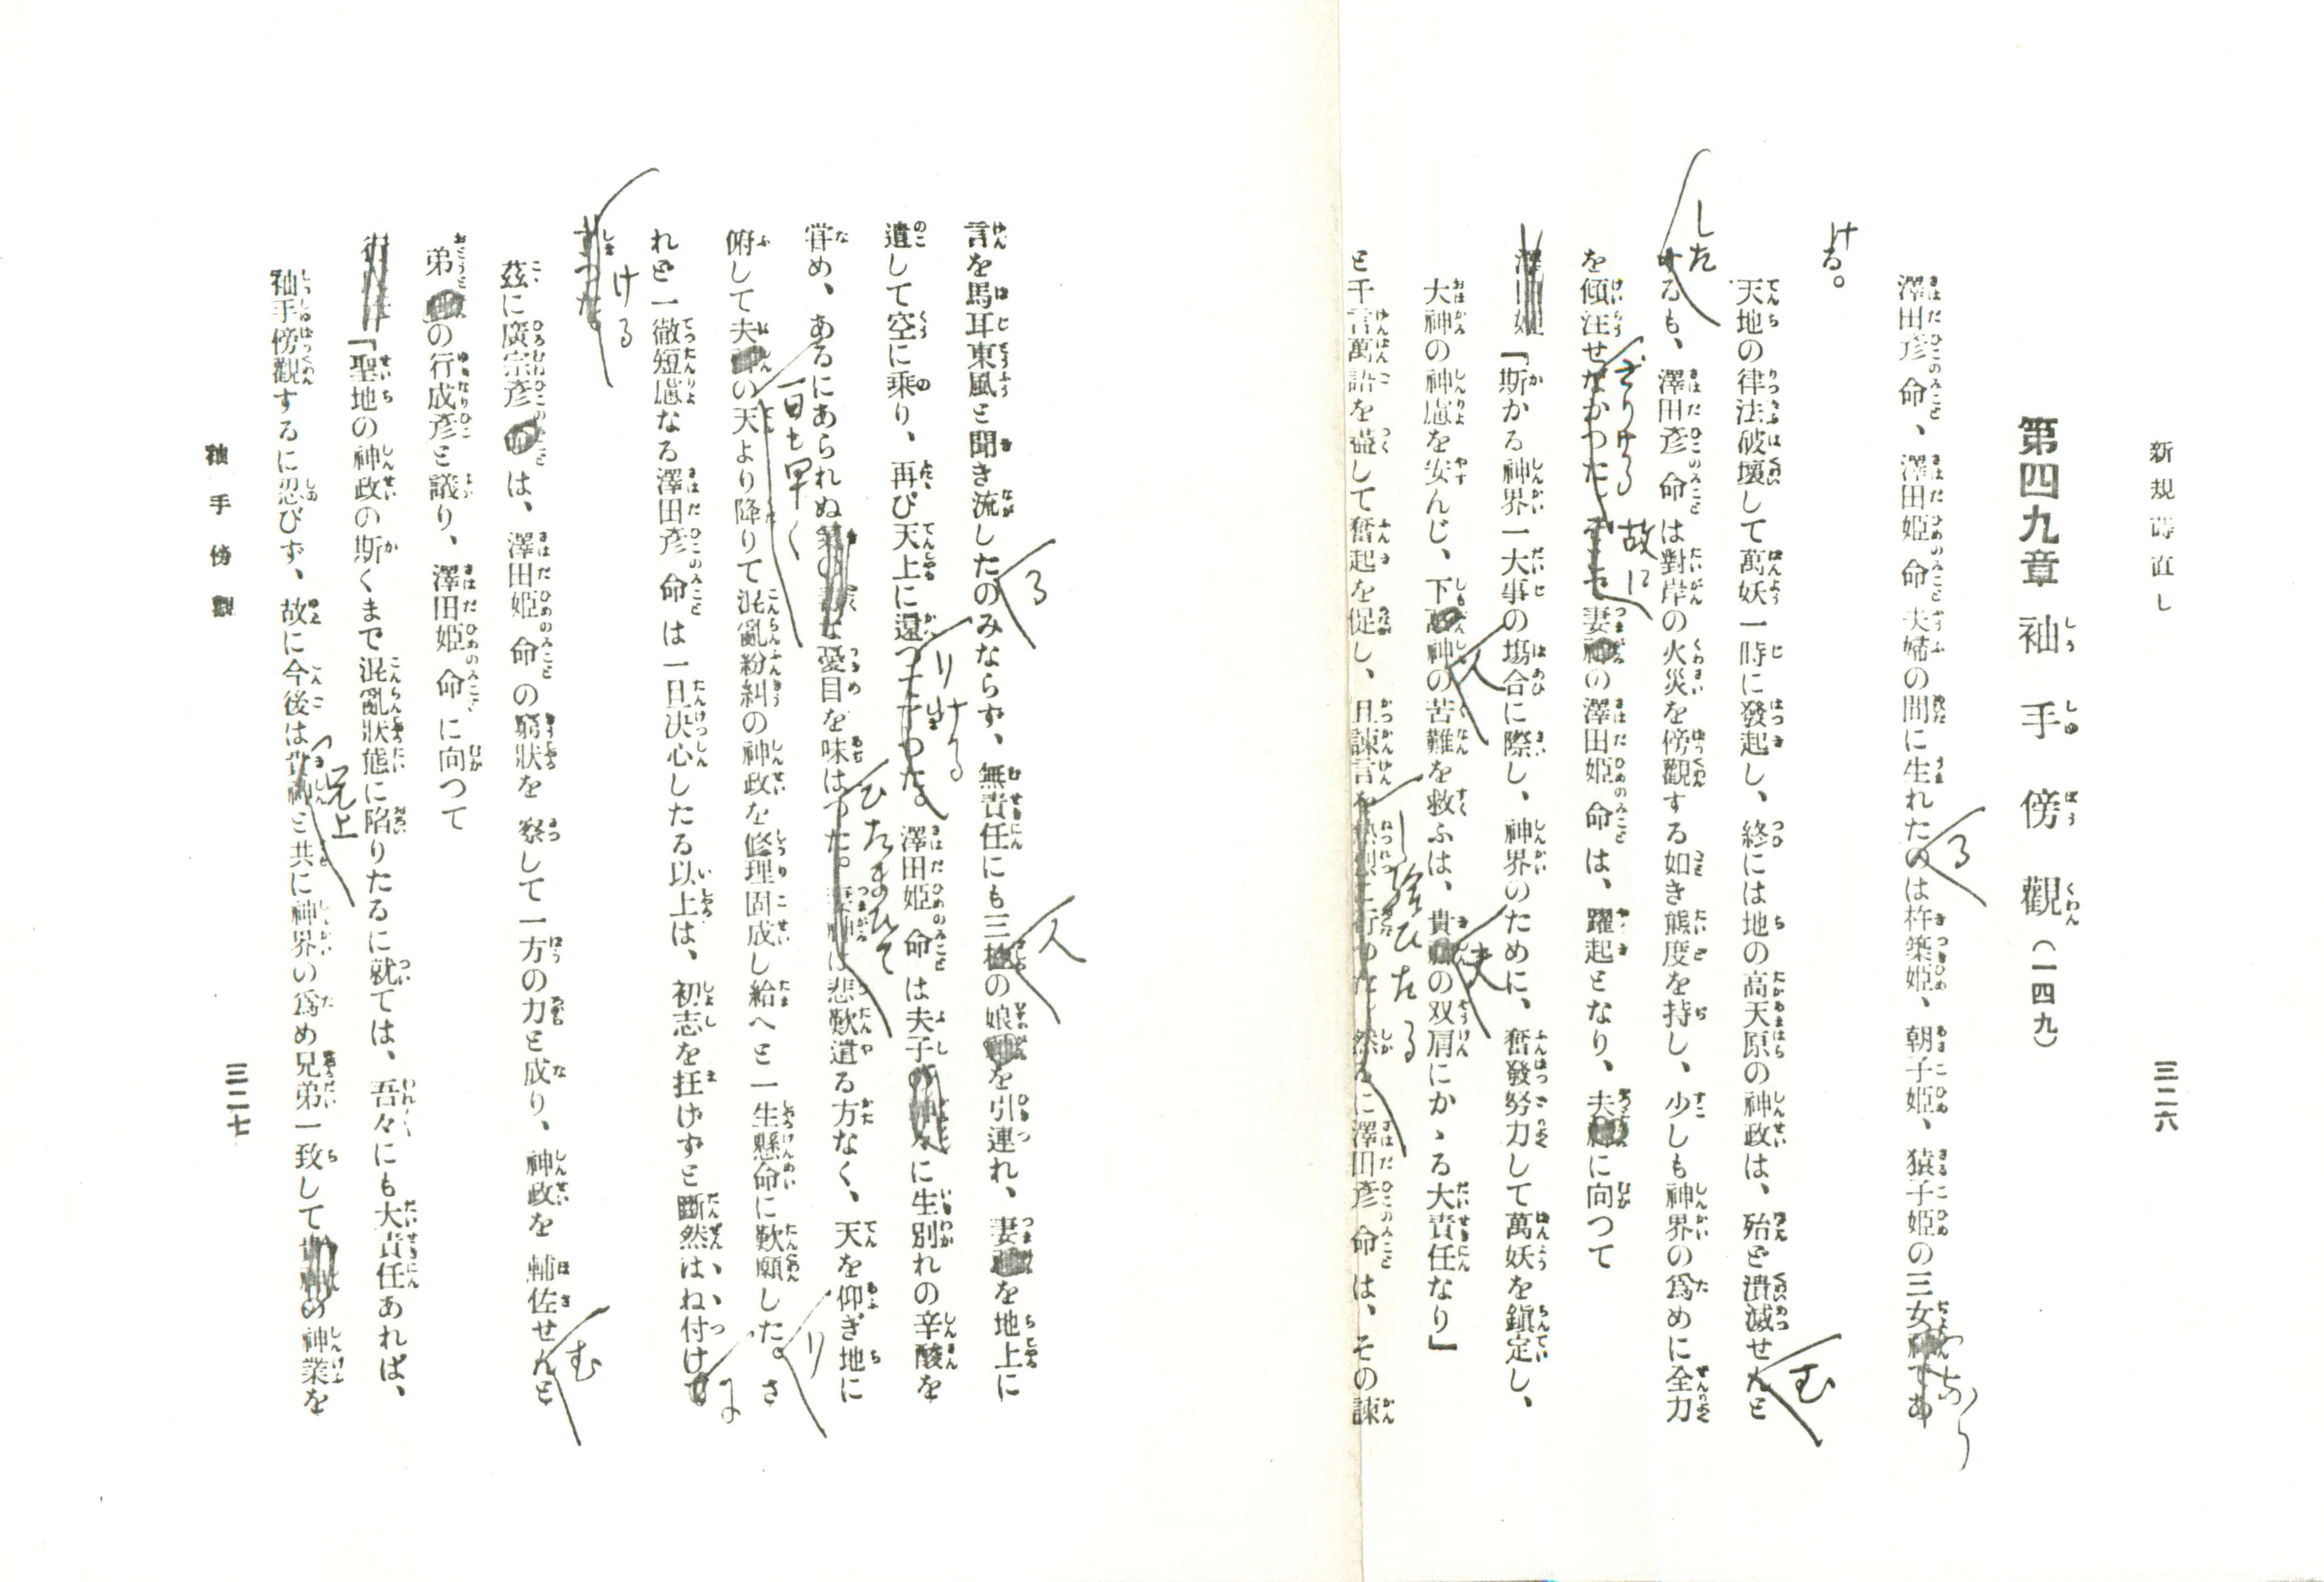 新規蒔直し
三二六
第四九章 袖手傍觀(一四九)
澤田彦命、澤田姫命夫婦の間に生れたのは杵築姫、朝子姫、猿子姫の三女であ
ける。
天地の律法破壞して萬妖一時に發起し、終には地の高天原の神政は、殆ど潰滅せんと
するも、澤田彦命は對岸の火災を傍觀する如き態度を持し、少しも神界の爲めに全力
した
む
を傾注せなかつた。そこで妻神の澤田姫命は、躍起となり、夫神に向つて
ざりける
故に
澤田姫『斯かる神界一大事の塲合に際し、神界のために、奮發努力して萬妖を鎭定し、
大神の神慮を安んじ、下萬神の苦難を救ふは、貴神の双肩にかゝる大責任なり』
人
夫
と千言萬語を盡して奮起を促し、且諫言を熱烈に行つた。然るに澤田彦命は、その諫
ひたる
言を馬耳東風と聞き流したのみならず、無責任にも三柱の娘を引連れ、妻神を地上に
る
人
遺して空に乘り、再び天上に還つてしまつた。澤田姫命は夫子に生別れの辛酸を
りける
甞め、あるにあられぬな憂目を味はつた。妻神は悲歎遣る方なく、天を仰ぎ地に
ひたまひて
俯して夫の天より降りて混亂紛糾の神政を修理固成し給へと一生懸命に歎願した。さ
一日も早く
り
れど一徹短慮なる澤田彦命は一旦决心したる以上は、初志を抂げずと斷然はね付けて
しまつた。
ける
茲に廣宗彦命は、澤田姫命の窮狀を察して一方の力と成り、神政を輔佐せんと
む
弟の行成彦と議り、澤田姫命に向つて
『聖地の神政の斯くまで混亂狀態に陷りたるに就ては、吾々にも大責任あれば、
袖手傍觀するに忍びず、故に今後は貴神と共に神界の爲め兄弟一致しての神業を
兄上
袖手傍觀
三二七